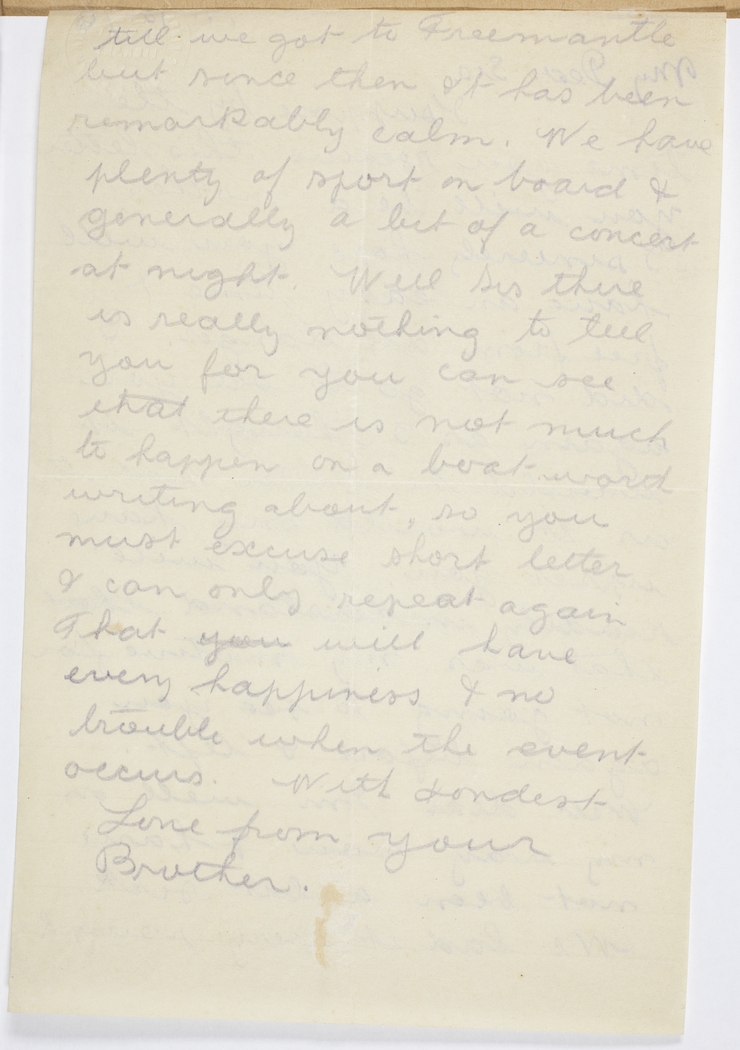 till we got to Freemantle
but since then it has been
remarkably calm. We have
plenty of sport on board &
generally a bit of a concert
at night. Well Sis there
is really nothing to tell
you for you can see
that there is not much
to happen on a boat word
writing about, so you
must excuse short letter
I can only repeat again
That you will have
every happiness & no
trouble when the event
occurs. With fondest
Love from your
Brother.